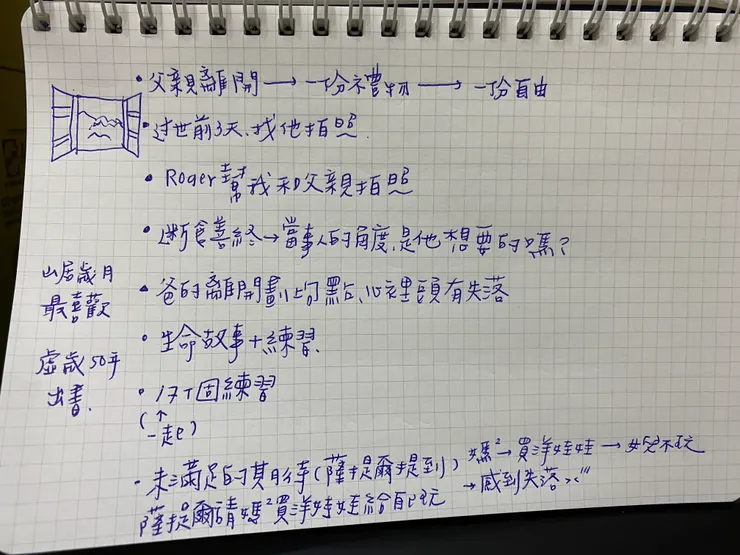 • 父親離開 → 一份禮物 → 一份自由
• 过世前3天、找他拍照.
• Roger幫我和父親拍照
• 断食善終→當事人的角度,是他想要的嗎?
山居歲月
最喜歡
• 爸的離開劃上句點、心裡頭有失落
• 生命故事+練習.
虛歲50年
出書.
• 17个固練習
(↑一起)
• 未滿足的期待(薩提爾提到) 媽²→買洋娃娃→女兒不玩
→感到失落
薩提爾請媽²買洋娃娃給自己玩